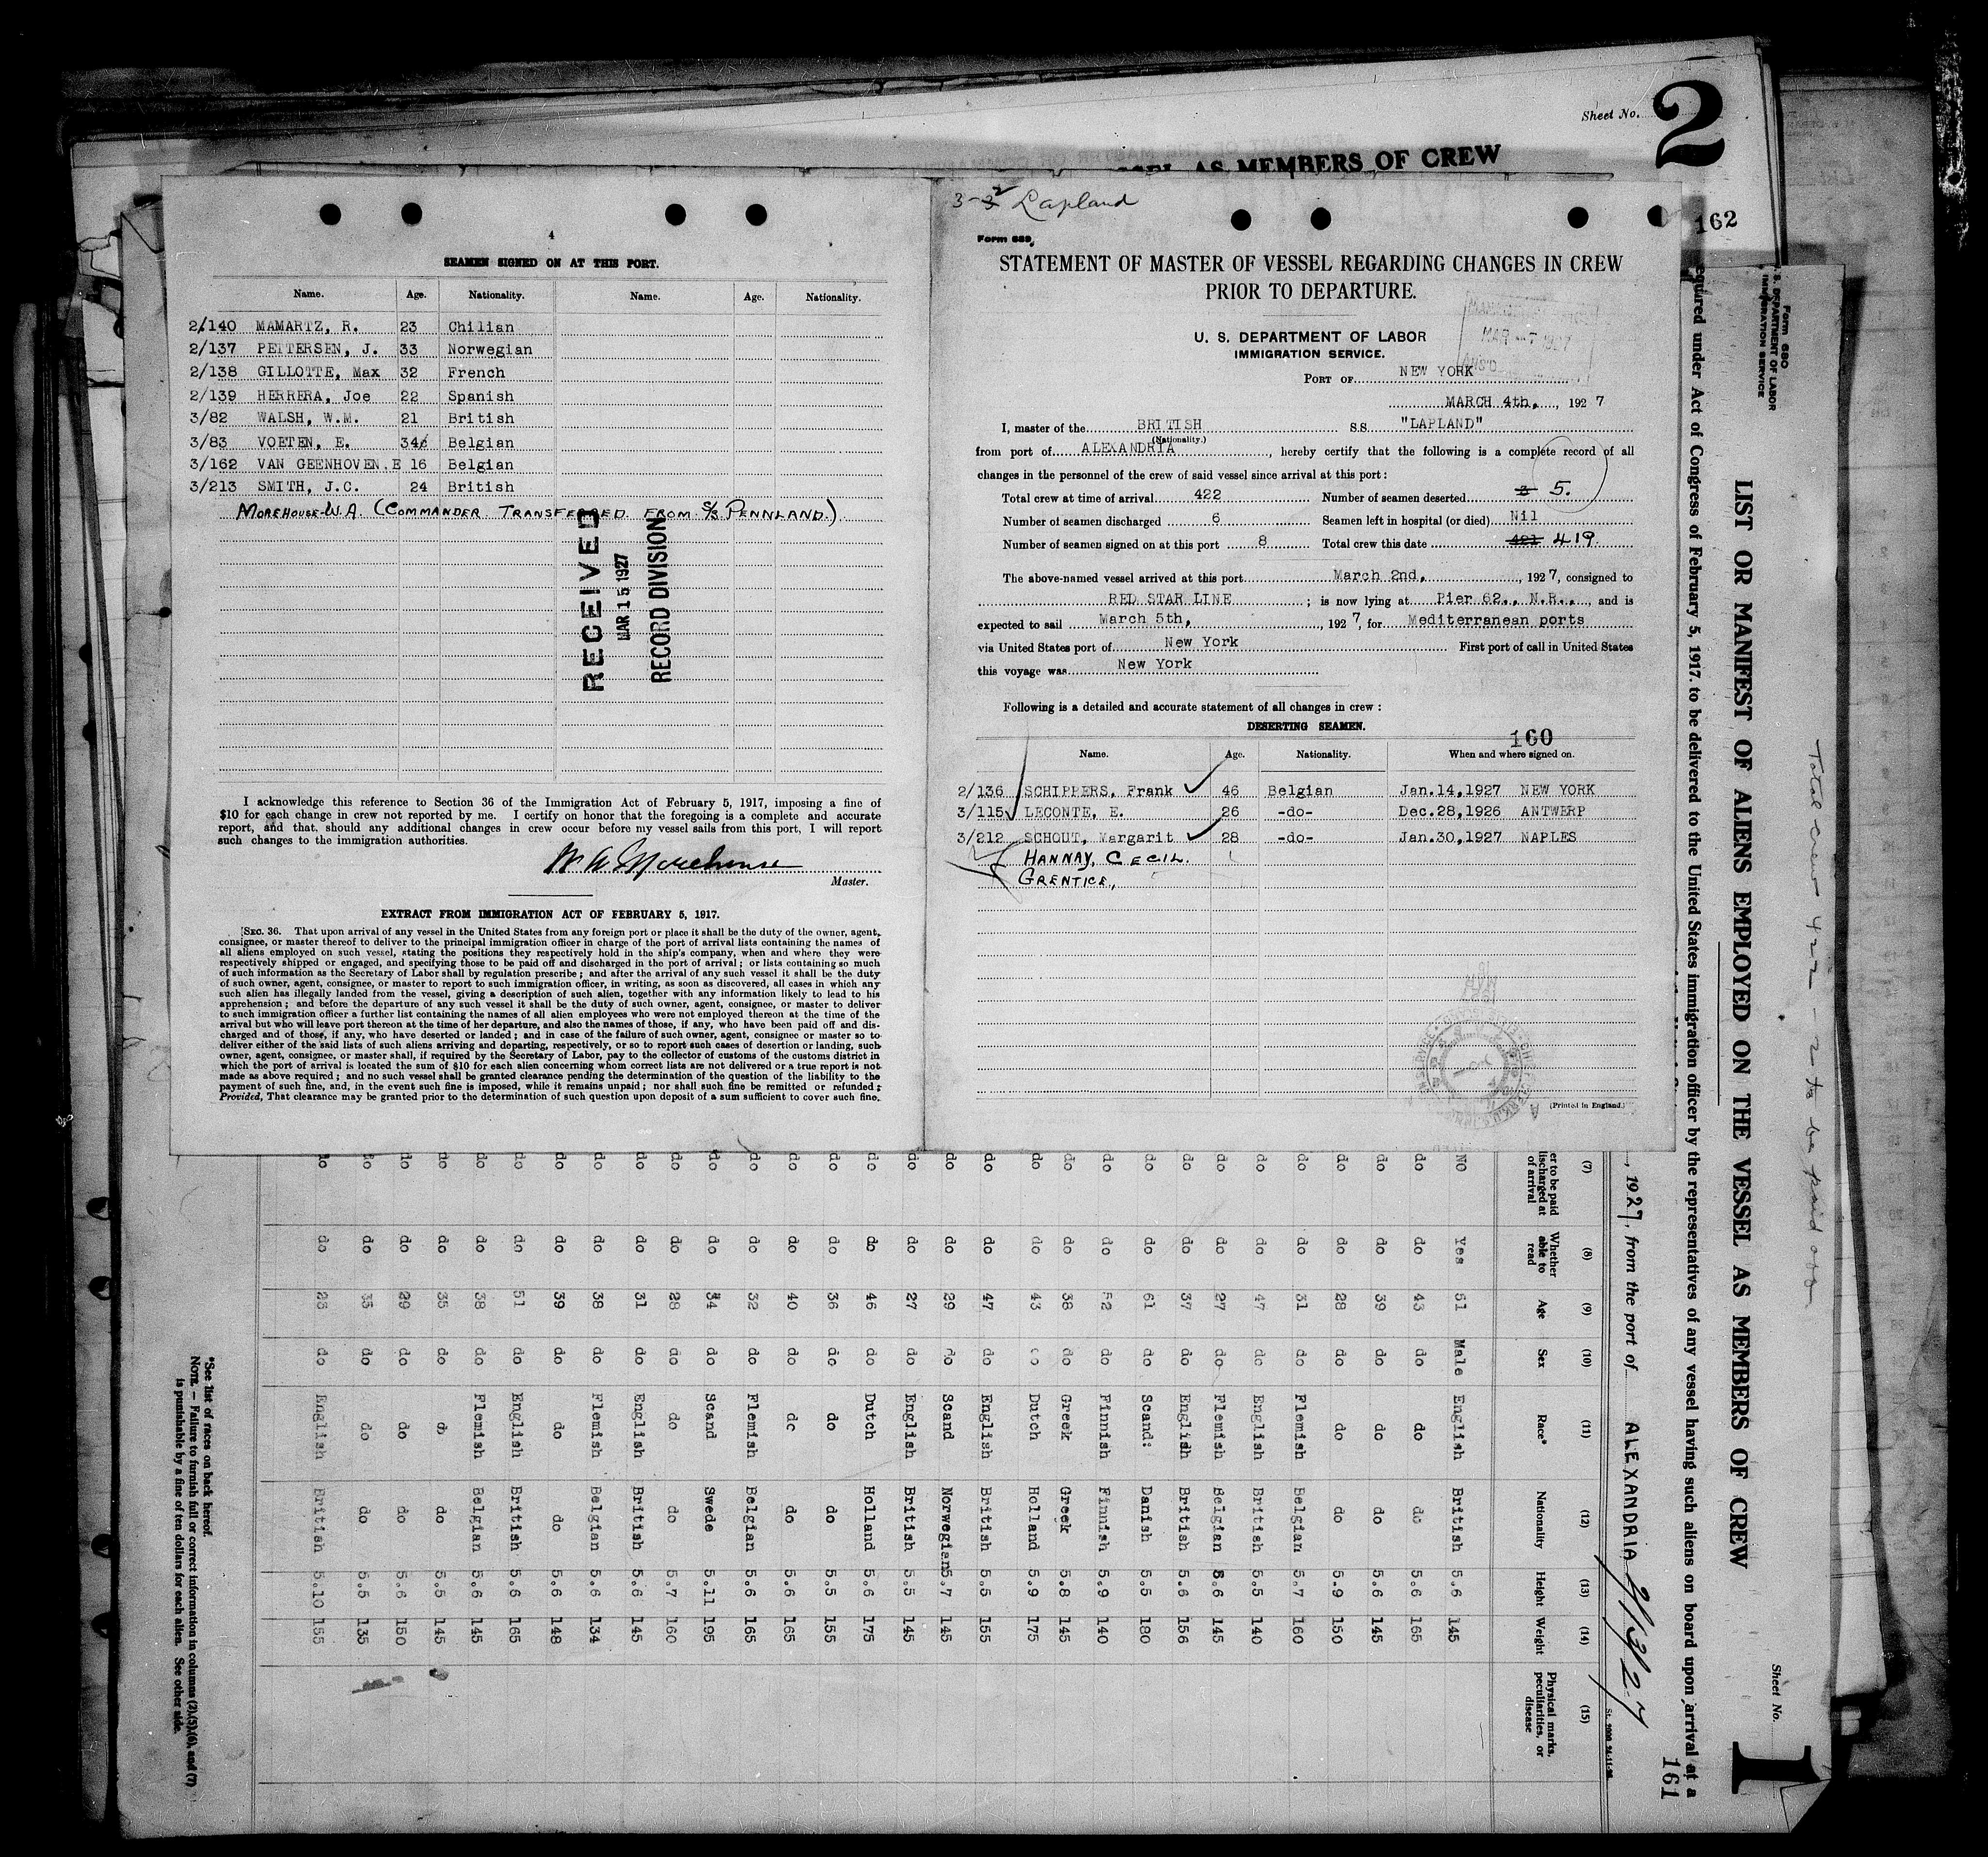 Sheet No. 2
AS MEMBERS OF CREW
162
4
SEAMEN SIGNED ON AT THIS PORT.
Name. Age. Nationality. Name. Age. Nationality.
2/140 MAMARTZ, R. 23 Chilian
2/137 PETTERSEN, J. 33 Norwegian
2/138 GILLOTTE, Max 32 French
2/139 HERRERA, Joe 22 Spanish
3/82 WALSH, W.M. 21 British
3/83 VOETEN, E. 34 Belgian
3/162 VAN GEENHOVEN.E 16 Belgian
3/213 SMITH, J.C. 24 British
MOREHOUSE-W.A. (COMMANDER TRANSFERRED FROM S/S PENNLAND)
RECEIVED
MAR 15 1927
RECORD DIVISION
I acknowledge this reference to Section 36 of the Immigration Act of February 5, 1917, imposing a fine of
$10 for each change in crew not reported by me. I certify on honor that the foregoing is a complete and accurate
report, and that, should any additional changes in crew occur before my vessel sails from this port, I will report
such changes to the immigration authorities.
W A Morehouse
Master.
EXTRACT FROM IMMIGRATION ACT OF FEBRUARY 5, 1917.
[SEC. 36. That upon arrival of any vessel in the United States from any foreign port or place it shall be the duty of the owner, agent,
consignee, or master thereof to deliver to the principal immigration officer in charge of the port of arrival lists containing the names of
all aliens employed on such vessel, stating the positions they respectively hold in the ship's company, when and where they were
respectively shipped or engaged, and specifying those to be paid off and discharged in the port of arrival; or lists containing so much
of such information as the Secretary of Labor shall by regulation prescribe; and after the arrival of any such vessel it shall be the duty
of such owner, agent, consignee, or master to report to such immigration officer, in writing, as soon as discovered, all cases in which any
such alien has illegally landed from the vessel, giving a description of such alien, together with any information likely to lead to his
apprehension; and before the departure of any such vessel it shall be the duty of such owner, agent, consignee, or master to deliver
to such immigration officer a further list containing the names of all alien employees who were not employed thereon at the time of the
arrival but who will leave port thereon at the time of her departure, and also the names of those, if any, who have been paid off and dis-
charged and of those, if any, who have deserted or landed; and in case of the failure of such owner, agent, consignee or master so to
deliver either of the said lists of such aliens arriving and departing, respectively, or so to report such cases of desertion or landing, such
owner, agent, consignee, or master shall, if required by the Secretary of Labor, pay to the collector of customs of the customs district in
which the port of arrival is located the sum of $10 for each alien concerning whom correct lists are not delivered or a true report is not
made as above required; and no such vessel shall be granted clearance pending the determination of the question of the liability to the
payment of such fine, and, in the event such fine is imposed, while it remains unpaid; nor shall such fine be remitted or refunded:
Provided, That clearance may be granted prior to the determination of such question upon deposit of a sum sufficient to cover such fine.
3-3 2 Lapland
Form 689.
STATEMENT OF MASTER OF VESSEL REGARDING CHANGES IN CREW
PRIOR TO DEPARTURE.
U. S. DEPARTMENT OF LABOR
IMMIGRATION SERVICE.
MAR 7 1927
ANS'D
PORT OF NEW YORK
MARCH 4th, 1927
I, master of the BRITISH S.S. "LAPLAND"
(Nationality.)
from port of ALEXANDRIA, hereby certify that the following is a complete record of all
changes in the personnel of the crew of said vessel since arrival at this port:
Total crew at time of arrival 422 Number of seamen deserted 3 5.
Number of seamen discharged 6 Seamen left in hospital (or died) Nil
Number of seamen signed on at this port 8 Total crew this date 421 419.
The above-named vessel arrived at this port March 2nd, 1927, consigned to
RED STAR LINE; is now lying at Pier 62., N.R., and is
expected to sail March 5th, 1927, for Mediterranean ports
via United States port of New York First port of call in United States
this voyage was New York
Following is a detailed and accurate statement of all changes in crew:
DESERTING SEAMEN.
160
Name. Age. Nationality. When and where signed on.
2/136 SCHIPPERS, Frank 46 Belgian Jan.14,1927 NEW YORK
3/115 LECONTE, E. 26 -do- Dec.28,1926 ANTWERP
3/212 SCHOUT, Margarit 28 -do- Jan.30,1927 NAPLES
HANNAY, CECIL.
GRENTICE,
(Printed in England.)
Total crew 422 - 2 to be paid off
Form 680
U. S. DEPARTMENT OF LABOR
IMMIGRATION SERVICE
Sheet No. 1
LIST OR MANIFEST OF ALIENS EMPLOYED ON THE VESSEL AS MEMBERS OF CREW
equired under Act of Congress of February 5, 1917, to be delivered to the United States immigration officer by the representatives of any vessel having such aliens on board upon arrival at a
161
, 1927, from the port of ALEXANDRIA 2/13/27
St. 9000 24-11-26
(7) (8) (9) (10) (11) (12) (13) (14) (15)
er to be paid discharged at of arrival Whether able to read Age Sex Race* Nationality Height Weight Physical marks, peculiarities, or disease
NO Yes 51 Male English British 5.6 145
do do 43 do do do 5.6 165
do do 39 do do do 5.6 145
do do 28 do do do 5.9 150
do do 31 do Flemish Belgian 5.7 160
do do 47 do English British 5.5 140
do do 27 do Flemish Belgian 5.6 145
do do 37 do English British 5.6 156
do do 61 do Scand: Danish 5.5 180
do do 52 do Finnish Finnish 5.9 140
do do 38 do Greek Greek 5.8 145
do do 43 do Dutch Holland 5.9 175
do do 47 do English British 5.5 155
do do 29 do Scand Norwegian 5.7 145
do do 27 do English British 5.5 145
do do 46 do Dutch Holland 5.6 175
do do 36 do do do 5.5 155
do do 40 do do do 5.6 165
do do 32 do Flemish Belgian 5.6 165
do do 34 do Scand Swede 5.11 195
do do 28 do do do 5.7 160
do do 31 do English British 5.6 145
do do 38 do Flemish Belgian 5.6 134
do do 39 do do do 5.6 148
do do 51 do English British 5.6 165
do do 38 do Flemish Belgian 5.6 145
do do 35 do do do 5.5 145
do do 29 do do do 5.6 150
do do 35 do do do 5.5 135
do do 23 do English British 5.10 155
*See list of races on back hereof.
NOTE. — Failure to furnish full or correct information in columns (2),(5),(6), and (7)
is punishable by a fine of ten dollars for each alien. See other side.